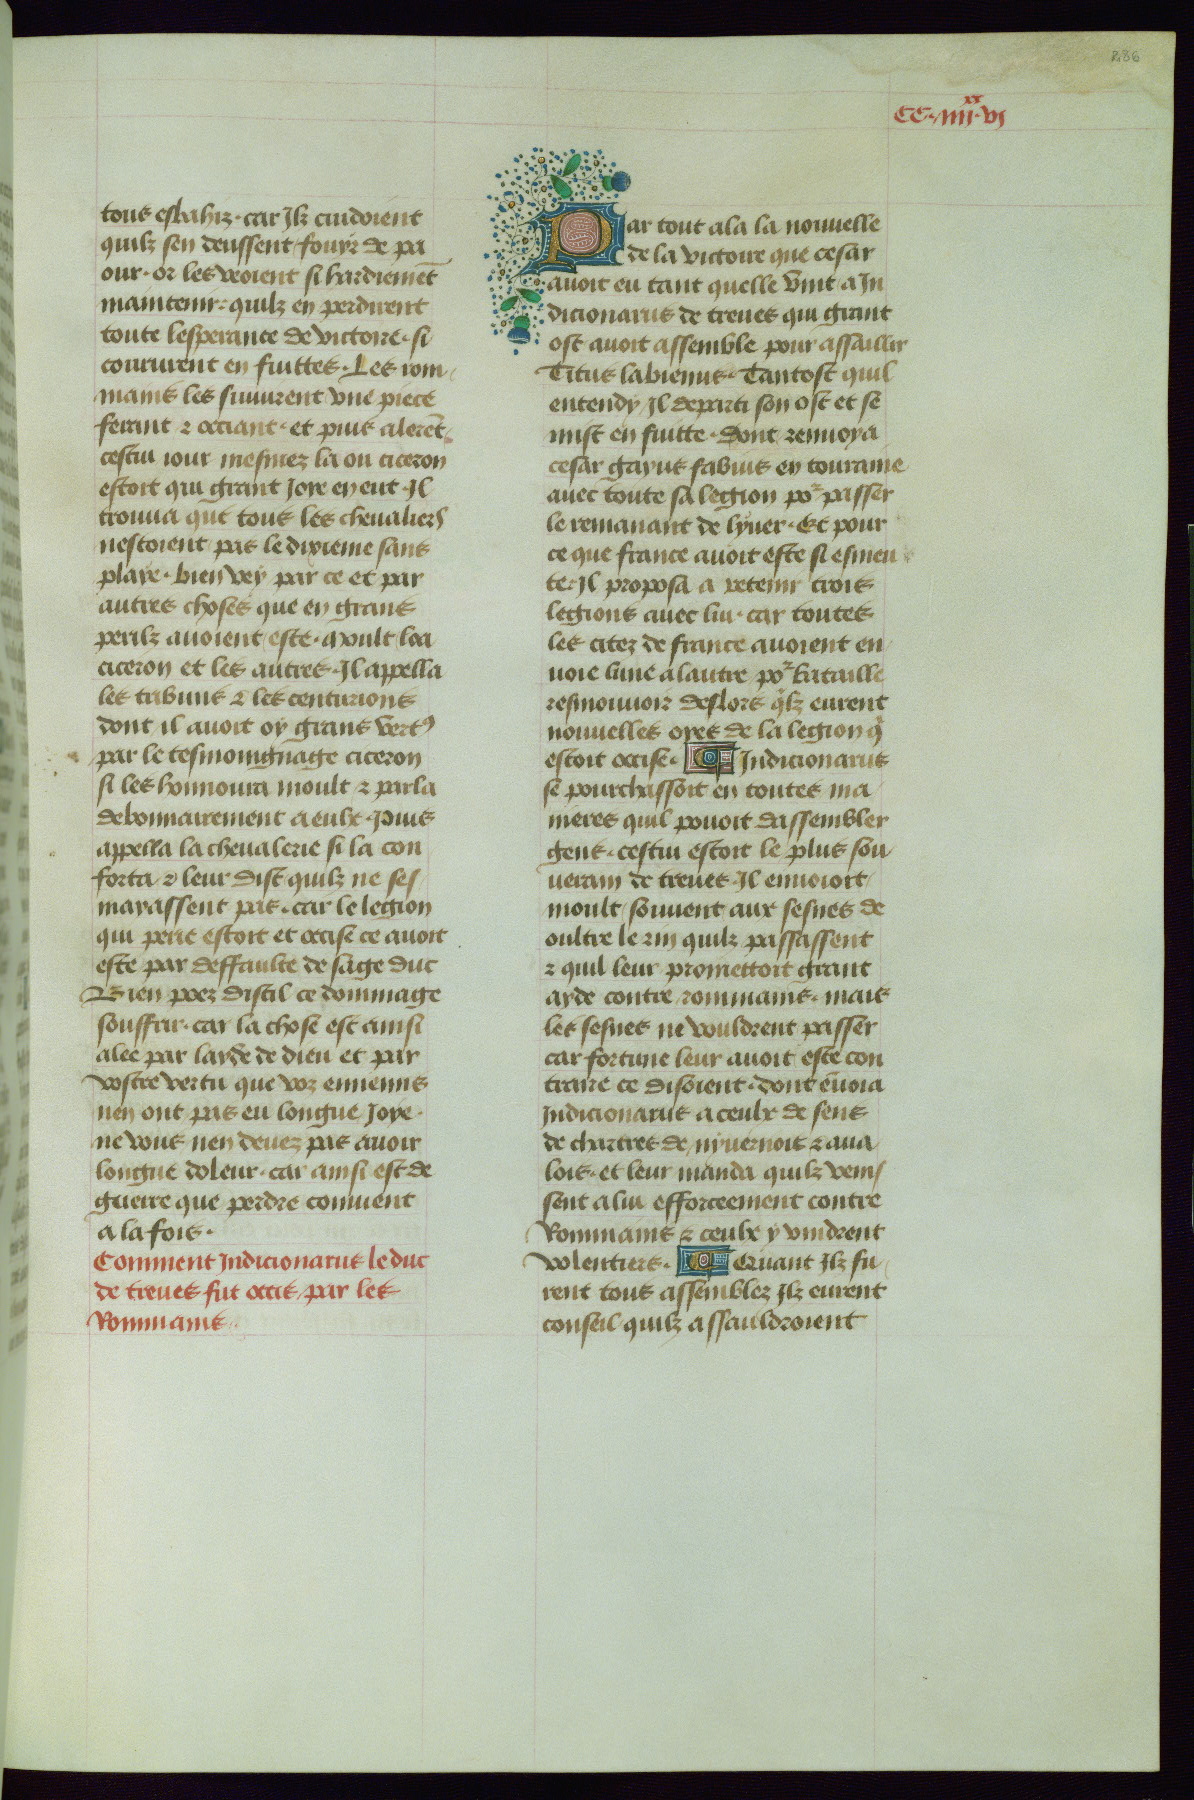 286
CC.IIII.XX.VI
tous esbahiz. car Ilz cuidoient
quilz sen deussent fouyr de pa
our. or les veoient si hardiemēt
maintenir. quilz en perdirent
toute lesperance de victoire. si
coururent en fuittes. Les rom
mains les suiuirent vne piece
ferant ⁊ occiant. et puis alerēt
cestui iour mesmez la ou ciceron
estoit qui grant Ioye en eut. Il
trouua que tous les cheualiers
nestoient pas le dixieme sans
playe. bien vey par ce et par
autres choses que en grans
perilz auoient este. moult loa
ciceron et les autres. Il appella
les tribuns ⁊ les centurions
dont il auoit oy grans vert⁹
par le tesmoingnage ciceron
si les honnoura moult ⁊ parla
debonnairement a eulx. Puis
appella la cheualerie si la con
forta ⁊ leur dist quilz ne ses
mayassent pas. car le legion
qui perie estoit et occise ce auoit
este par deffaulte de sage duc
Bien poez distil ce dommage
souffrir. car la chose est ainsi
alee par layde de dieu et par
vostre vertu que voz ennemis
nen ont pas eu longue Ioye.
ne vous nen deuez pas auoir
longue doleur. car ainsi est de
guerre que perdre conuient
a la fois.
Comment Indicionarus le duc
de treues fut occis par les
Rommains
Par tout ala la nouuelle
de la victoire que cesar
auoit eu tant quelle vint a In
dicionarus de treues qui grant
ost auoit assemble pour assaillir
Titus labienus. Tantost quil
entendy Il departi son ost et se
mist en fuitte. Dont renuoya
cesar gayus fabius en touraine
auec toute sa legion poʳ passer
le remanant de lyuer. Et pour
ce que france auoit este si esmeu
te. Il proposa a retenir trois
legions auec lui. car toutes
les citez de france auoient en
uoie lune a lautre poʳ bataille
resmouuoir deslors qˡlz eurent
nouuelles oyes de la legion qͥ
estoit occise. Indicionarus
se pourchassoit en toutes ma
nieres quil pouoit dassembler
gens. cestui estoit le plus sou
uerain de treues. Il enuoioit
moult souuent aux sesnes de
oultre le rin quilz passassent
⁊ quil leur promettoit grant
ayde contre rommains. mais
les sesnes ne vouldrent passer
car fortune leur auoit este con
traire ce disoient. dont ēuoia
Indicionarus a ceulx de sens
de chartres de nyuernois ⁊ aua
lois. et leur manda quilz venis
sent a lui efforceement contre
Rommains ⁊ ceulx y vindrent
volentiers. Quant Ilz fu
rent tous assemblez Ilz eurent
conseil quilz assauldroient